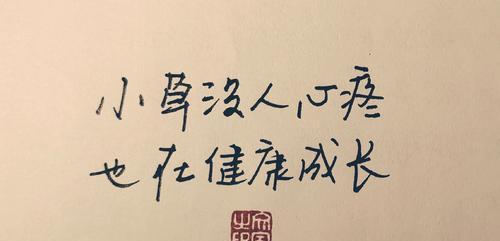 小草没人心疼
也在健康成长